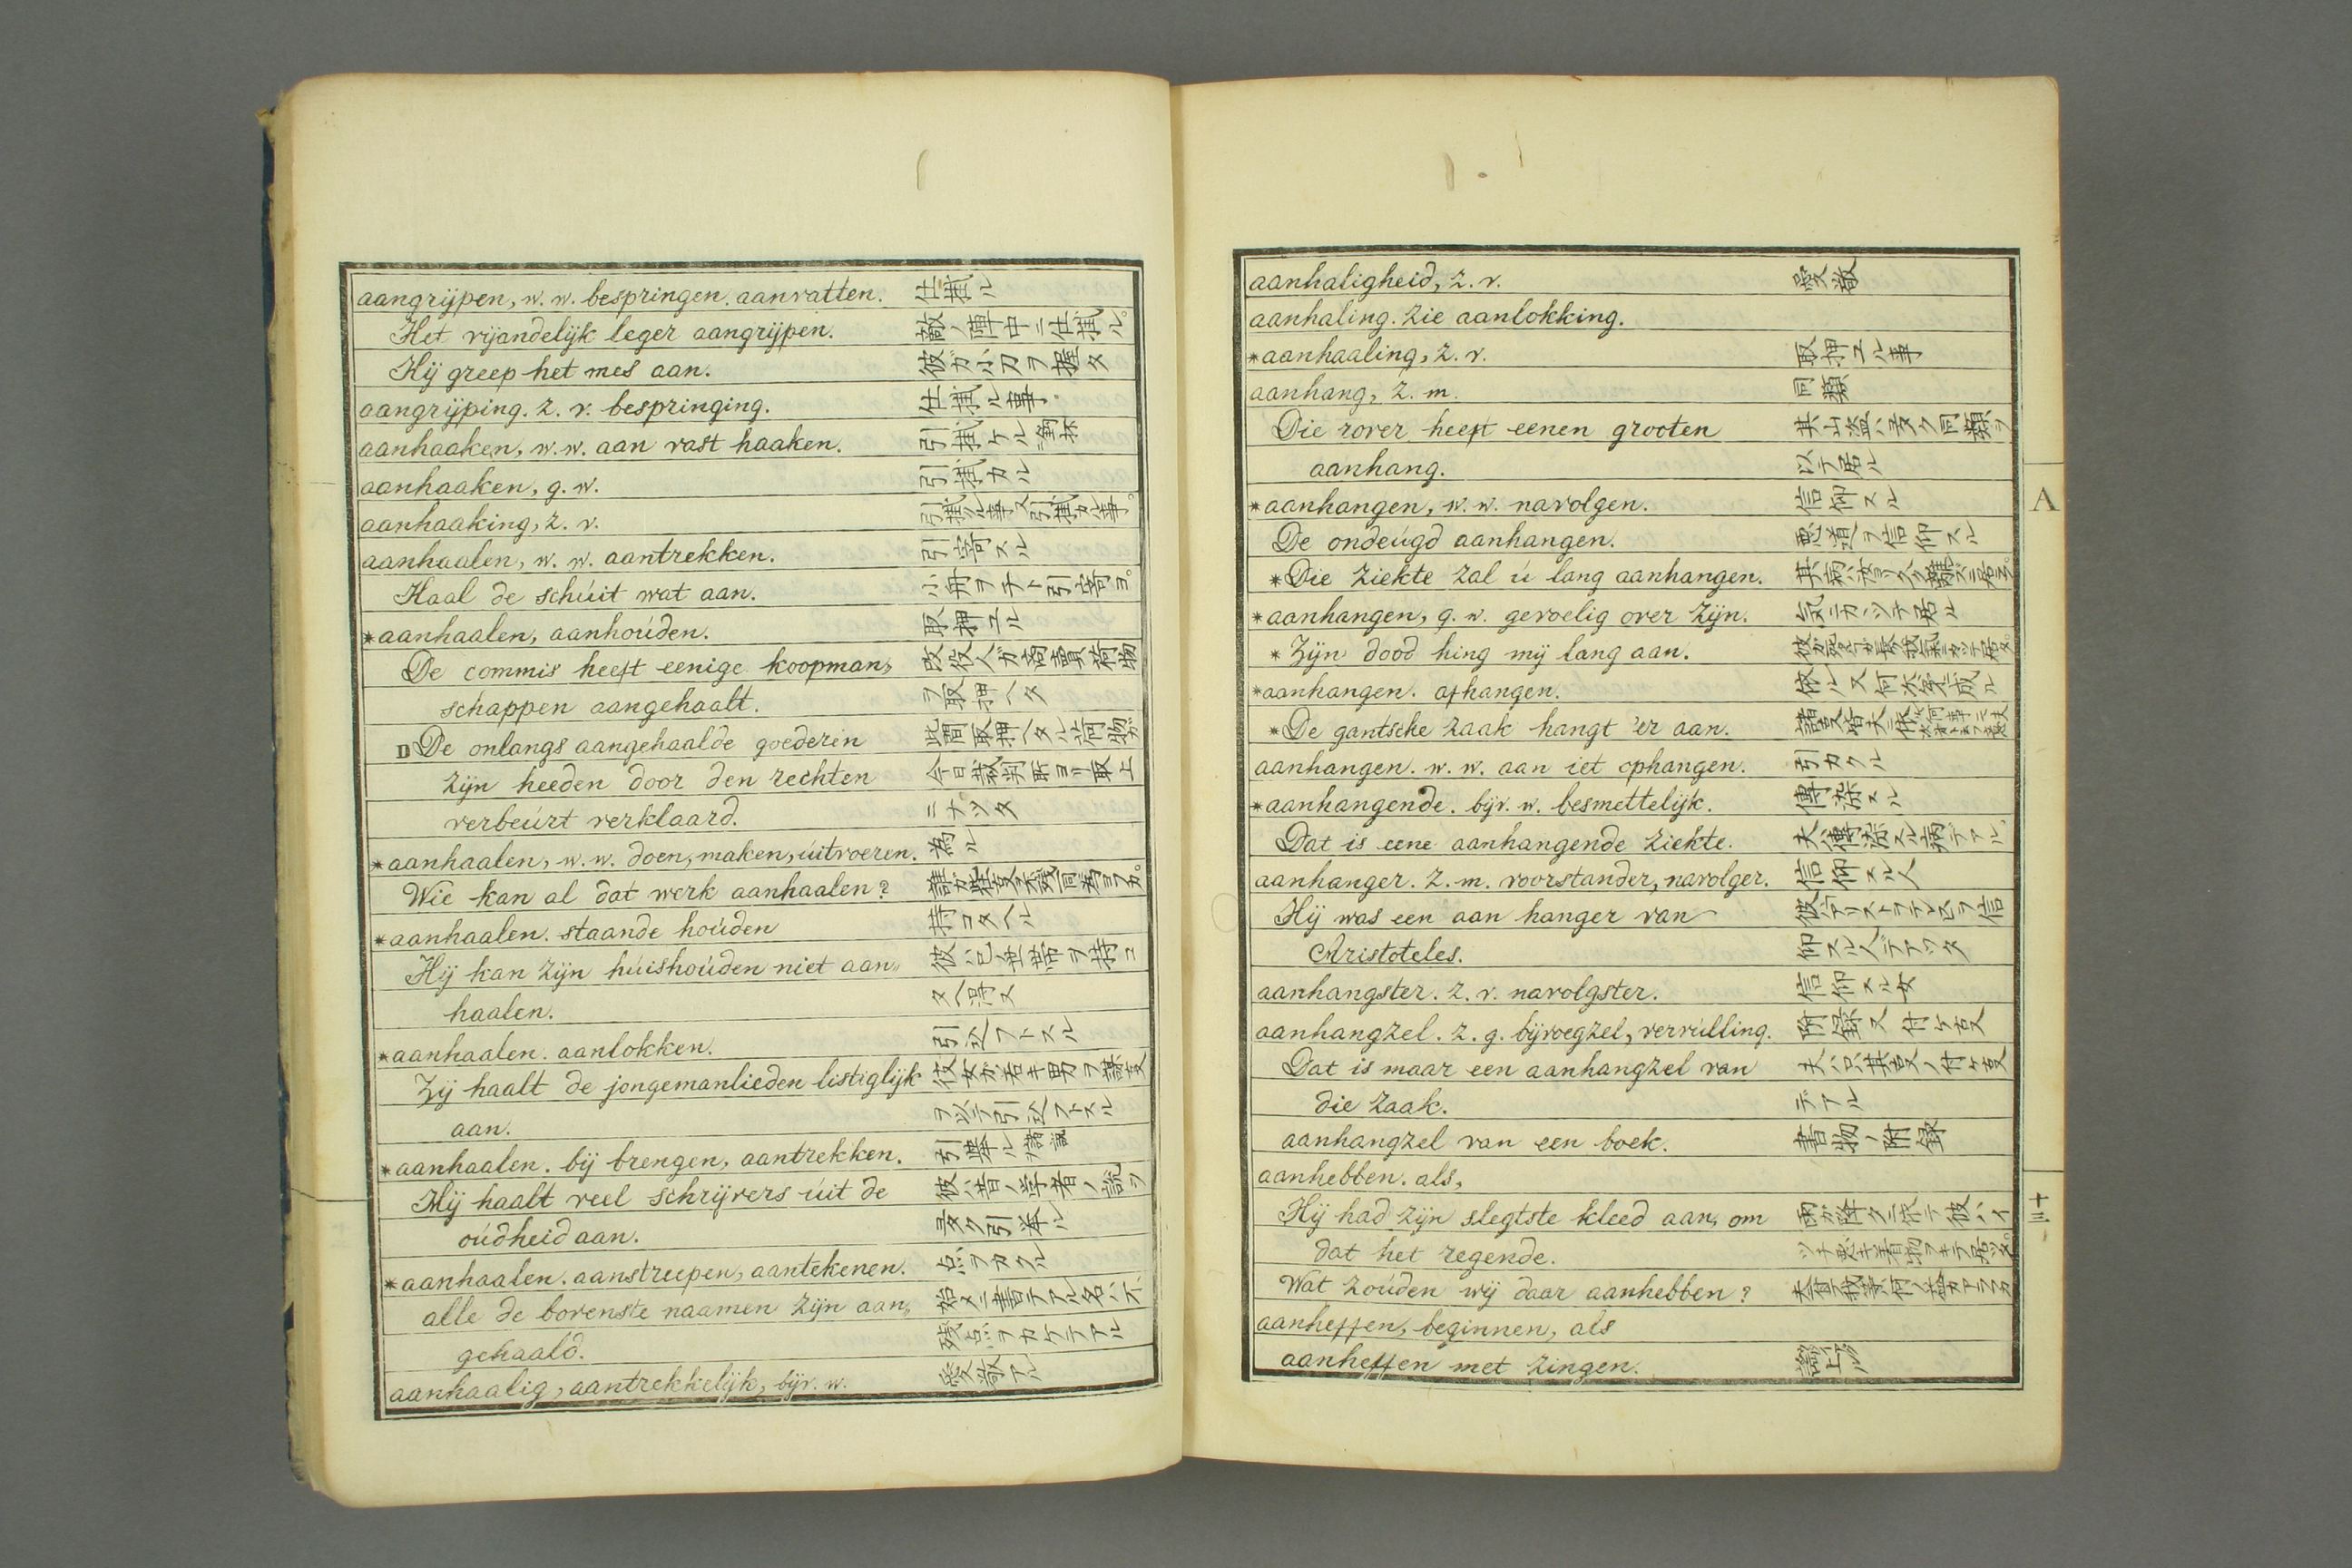 aangrijpen, w. w. bespringen. aanvatten. 仕掛ル
Het vijandelijk leger aangrijpen. 敵ノ陣中ニ仕掛ル。
Hij greep het mes aan. 彼ガ小刀ヲ握タ
aangrijping. z. v. bespringing. 仕掛ル事
aanhaaken, w. w. aan vast haaken. 引掛ケル
aanhaaken, g. w. 引掛カル
aanhaaking, z. v. 引掛ル事又引掛カル事。
aanhaalen, w. w. aantrekken. 引寄スル
Haal de schúit wat aan. 小舟ヲチト引寄ヨ。
*aanhaalen, aanhoúden. 取押ユル
De commis heeft eenige koopman„ 改役人ガ商賣荷物
schappen aangehaalt. ヲ取押ヘタ
De onlangs aangehaalde goederin 此間取押ヘタル荷物ガ
zijn heeden door den rechten 今日裁判所ヨリ取上
verbeúrt verklaard. ニナツタ
*aanhaalen, w. w. doen, maken, úitvoeren. 為ル
Wie kan al dat werk aanhaalen?
*aanhaalen. staande hoúden 持コタヘル
Hij kan zijn húishoúden niet aan„ 彼ハ己ノ世帯ヲ持コ
haalen. タヘ得ヌ
*aanhaalen. aanlokken. 引込フトスル
Zij haalt de jongemanlieden listiglijk 彼女ガ若キ男ヲ謀事
aan. ヲ以テ引込フトスル
*aanhaalen. bij brengen, aantrekken. 引挙ル
Hij haalt veel schrijvers úit de 彼ハ昔ノ学者ノ説ヲ
oúdheid aan. 多ク引挙ル
*aanhaalen. aanstreepen, aantekenen. 点ヲカクル
alle de bovenste naamen zijn aan„ 始メニ書テアル名ハ不
gehaald. 残点ヲカケテアル
aanhaalig, aantrekkelijk, bijv. w. 愛敬アル
aanhaligheid, z. v. 愛敬
aanhaling. zie aanlokking.
*aanhaaling, z. v. 取押ユル事
aanhang, z. m. 同類
Die rover heeft eenen grooten 其山盗ハ多ク同類ヲ
aanhang. 以テ居ル
*aanhangen, w. w. navolgen. 信仰スル
De ondeúgd aanhangen. 悪道ヲ信仰スル
*Die ziekte zal ú lang aanhangen.
*aanhangen, g. w. gevoelig over zijn. 気ニカヽツテ居ル
*Zijn dood hing mij lang aan.
*aanhangen. afhangen. 依ル又何次第ニ成ル
*De gantsche zaak hangt 'er aan.
aanhangen. w. w. aan iet ophangen. 引カクル
*aanhangende. bijv. w. besmettelijk. 傳染スル
Dat is eene aanhangende ziekte. 夫ハ傳染スル病デアル。
aanhanger. z. m. voorstander, navolger. 信仰スル人
Hij was een aan hanger van 彼ハアリストヲテレスヲ信
Aristoteles. 仰スル人デアツタ
aanhangster. z. v. navolgster. 信仰スル女
aanhangzel. z. g. bijvoegzel, vervúlling. 附録又付ケ事
Dat is maar een aanhangzel van 夫ハ只其事ノ付ケ事
die zaak. デアル
aanhangzel van een boek. 書物ノ附録
aanhebben. als,
Hij had zijn slegtste kleed aan, om 雨ガ降タニ依テ彼ハイ
dat het regende. ツチ悪キ着物ヲキテ居ツタ。
Wat zoúden wij daar aanhebben?
aanheffen, beginnen, als
aanheffen met zingen.
A
十三